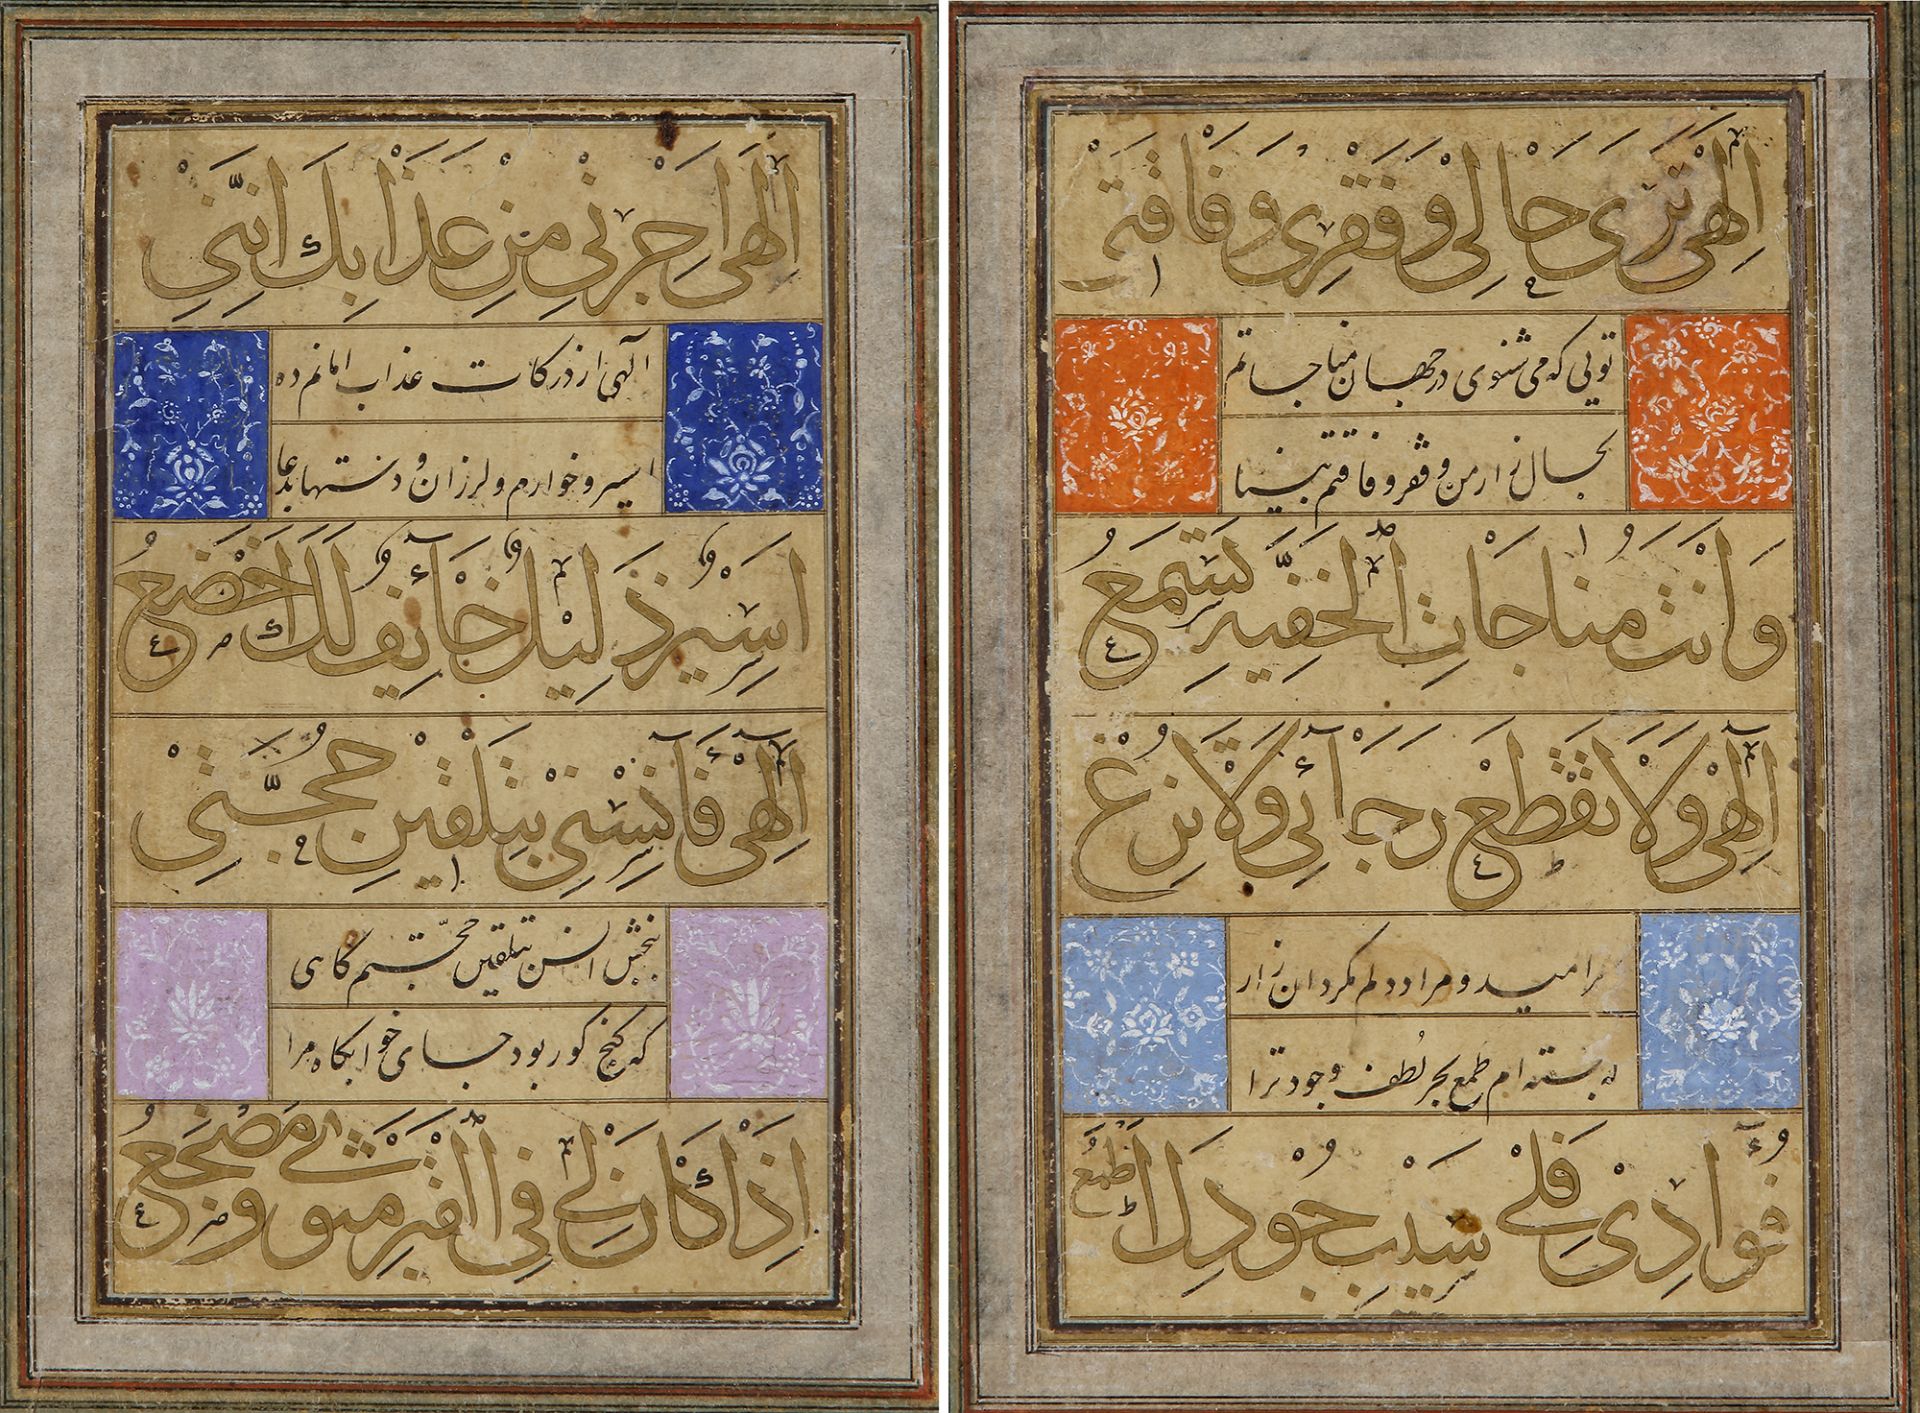 الهی تری حالی و فقری و فاقتی
تویی که می شنوی در جهان مناجاتم
بحال زار من و فقر و فاقتم بینا
وَاَنْتَ مناجات الخفیه یستمع
الهی ولا تقطع رجائی ولا تزغ
امید و مرا دلم مگردان زار
بسته ام طمع بحر لطف وجود ترا
فوادی فلی سیب جودك اطمع
الهی اجرنی من عذابك اننی
الهی از درکات عذاب امانم ده
اسیر و خوارم و لرزان و
اسیر ذلیل خائف لك اخضع
الهی فانسنی بتلقین حجتی
ببخش انس بتلقین حجتم گاهی
که کنج گور بود جای خوابگاه مرا
اذا كان لی فی القبر مثوی و مضجع